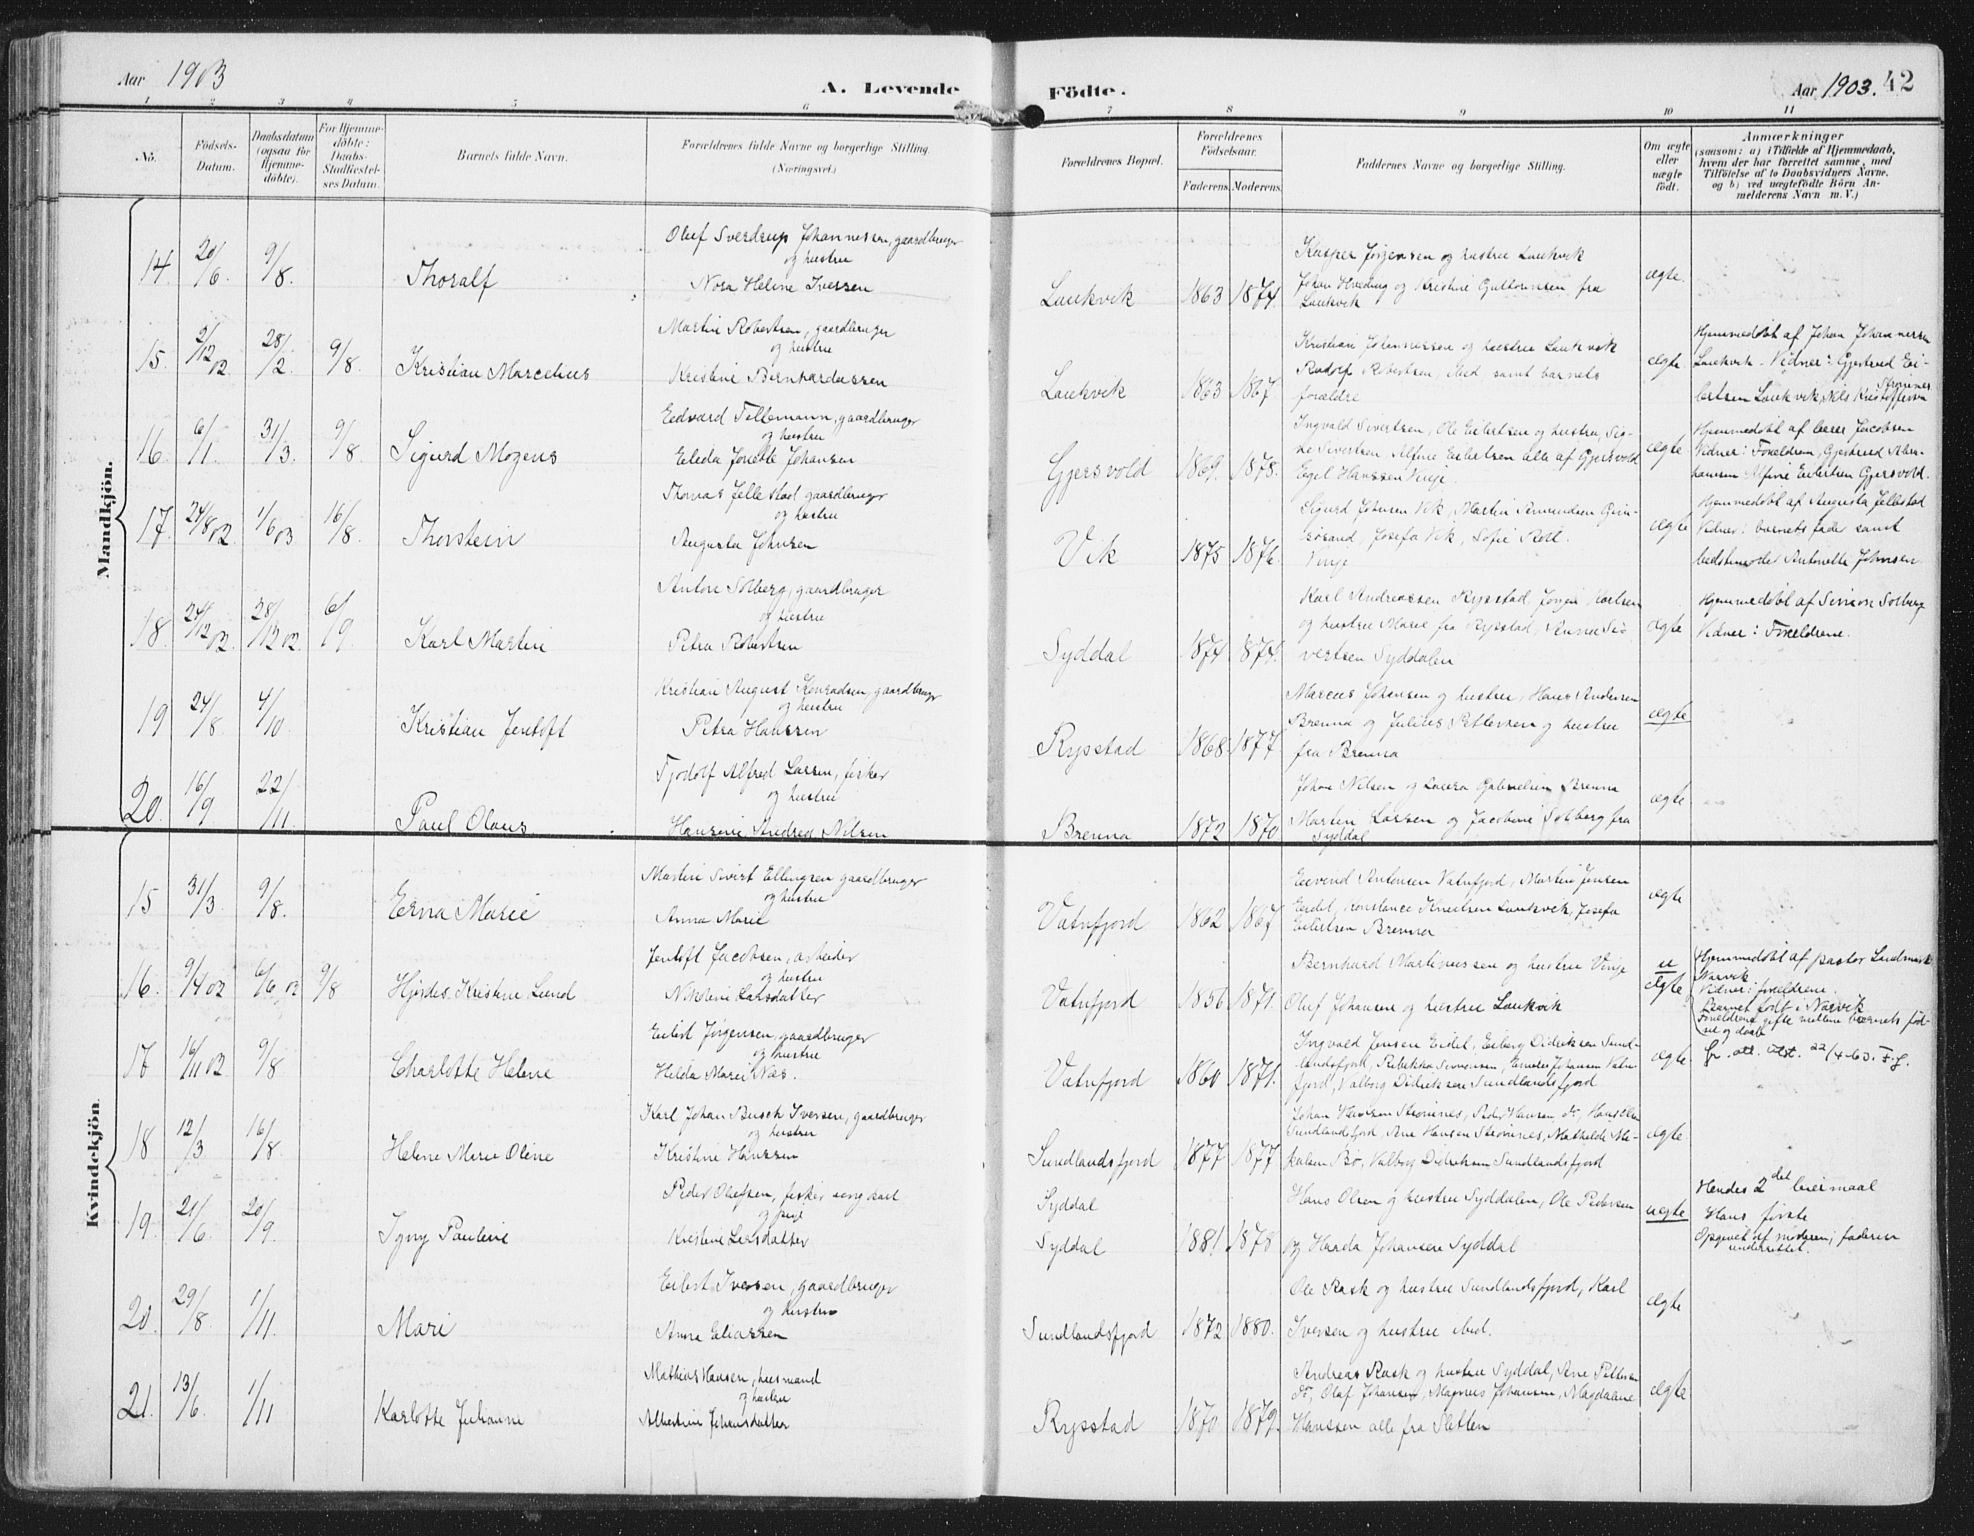 Aar 1903
A. Levende
Födte.
Aar 1903. 42
1 2 3 4 5 6 7 8 9 10 11
No.
Födsels-Datum.
Daabsdatum (ogsaa for Hjemme-döbte).
For Hjemme-döbte: Daabs-Stadfæstel-ses Datum.
Barnets fulde Navn.
Forældrenes fulde Navne og borgerlige Stilling. (Næringsvei.)
Forældrenes Bopæl.
Forældrenes Födselsaar.
Faderens. Moderens.
Faddernes Navne og borgerlige Stilling.
Om ægte eller uægte födt.
Anmærkninger
(saasom: a) i Tilfælde af Hjemmedaab, hvem der har forrettet samme, med Tilföielse af to Daabsvidners Navne, og b) ved uægtefödte Börn An-melderens Navn m. V.)
Mandkjön.
14 20/6 9/8. Thoralf
Oluf Sverdrup Johannessen, gaardbruger
og hustru
Nora Heline Iversen
Laukvik 1863 1874.
Kasper Jørgensen og hustru Laukvik
Johan Hveding og Kristine Guttormsen fra
Laukvik
ægte.
15. 2/12 02 28/2 9/8 Kristian Marcelius
Martin Robertsen, gaardbruger
og hustru
Kristine Bernhardussen
Laukvik 1863 1867.
Kristian Johannessen og hustru Laukvik
Rudolf Robertsen, ibid samt barnets
forældre
ægte
Hjemmedøbt af Johan Johannessen
Laukvik. Vidner: Gjertrud Ei-
lertsen Laukvik, Nils Kristoffersen
Strømnes
16. 6/1 31/3 9/8 Sigurd Mogens
Edvard Tellemann, gaardbruger
og hustru
Elida Jonette Johansen
Gjersvold 1869. 1878.
Ingvald Sivertsen, Ole Eilertsen og hustru, Sig-
 Sivertsen, Alfine Eilertsen alle af Gjersvold
Egel Hanssen Vinje.
ægte
Hjemmedøbt af lærer Jacobsen
Vidner: Forældrene, Gjertrud
 Alfine Eilertsen Gjersvold.
17. 24/8 02 1/6 03 16/8. Thorstein
Thomas Jellestad gaardbruger
og hustru
Augusta Johnsen
Vik 1875 1876.
Sigurd Johnsen Vik, Martin Amundsen Grim-
 Josefa Vik, Sofie Roll.
Vinje
ægte
Hjemmedøbt af Augusta Jellestad
Vidner: barnets fader samt
bedstemoder Antonette Johnsen
18. 24/12 02 28/12 02. 6/9. Karl Martin
Anton Solberg, gaardbruger
og hustru
Petra Robertsen
Syddal 1874 1874.
Karl Andreassen Rysstad, Jørgen Karlsen
og hustru Marie fra Rysstad, Anna Si-
vertsen Syddalen
ægte
Hjemmedøbt af Simon Solberg
Vidner: Forældrene.
19 24/8 4/10 Kristian Jentoft
Kristian August Konradsen, gaardbruger
og hustru
Petra Hanssen
Rysstad 1868. 1877
Marcus Johansen og hustru, Hans Andersen
Brenna og Julius Pettersen og hustru
fra Brenna
ægte
20. 16/9 22/11. Paul Olaus
Tjodolf Alfred Larsen, fisker
og hustru
Hansine Andrea Nilsen
Brenna 1872 1870
Johan Nilsen og Laura Gabrielsen Brenna
Martin Larsen og Jacobine Solberg fra
Syddal
ægte
Kvindekjön.
15 31/3 9/8. Erna Marie
Martin Sivert Ellingsen gaardbruger
og hustru
Anna Marie
Vatnfjord 1862 1867
Eevend Antonsen Vatnfjord, Martin Jensen
Eidet, Konstance Knutsen Laukvik, Josefa
Eilertsen Brenna
ægte
16. 9/4 02 6/6 02 9/8 Hjørdis Kristine Lund
Jentoft Jacobsen, arbeider
og hustru
Nikoline Larsdatter
Vatnfjord 1856 1871.
Bernhard Martinussen og hustru Vinje
Oluf Johansen og hustru Laukvik
u
ægte
Hjemmedøbt af pastor Landmark
Narvik
Vidner: forældrene.
Barnet født i Narvik
Forældrene gifte mellem barnets fød-
sel og daab
17 16/11 02 9/8 Charlotte Helene
Eilert Jørgensen, gaardbruger
og hustru
Helda Marie Næs.
Vatnfjord 1860 1871.
Ingvald Jensen Eidet, Eiberg Didriksen Sund-
landsfjord, Rebekka Sørensen, Johansen Vatn-
fjord, Valborg Didriksen Sundlandsfjord
ægte
fr. att. utst. 22/4-63. F.G.
18 12/3 16/8. Helene Marie Oline
Karl Johan Busch Iversen, gaardbruger
og hustru
Kristine Hanssen
Sundlandsfjord 1877 1877
Johan Hansen Strømnes, Peder Hansen do, Hans Olsen
Sundlandsfjord, Ane Hansen Strømnes, Mathilde Mi-
kalsen Bø, Valborg Didriksen Sundlandsfjord
ægte
19. 21/6 20/9. Igny Pauline
Peder Olufsen, fisker ungkarl
og pige
Kristine Larsdatter
Syddal
Syddal 1881. 1878
Hans Olsen og hustru Syddalen, Ole Pedersen
og Harda Johansen Syddal
uægte
Hendes 2det leiermaal
Hans første
Opgivet af moderen; faderen
underrettet.
20. 29/8 1/11. Mari
Eilert Iversen, gaardbruger
og hustru
Anna Eliassen
Sundlandsfjord 1872 1880.
Ole Rask og hustru Sundlandsfjord, Karl
Iversen og hustru ibid.
ægte
21. 13/6. 1/11 Karlotte Julianne
Mathias Hansen, husmand
og hustru
Albertine Johansdatter
Rysstad 1870 1879.
Andreas Rask og hustru Syddal, Ane Pettersen
do, Olaf Johansen, Magnus Johansen, Magdalene
Hanssen alle fra Sletten
ægte